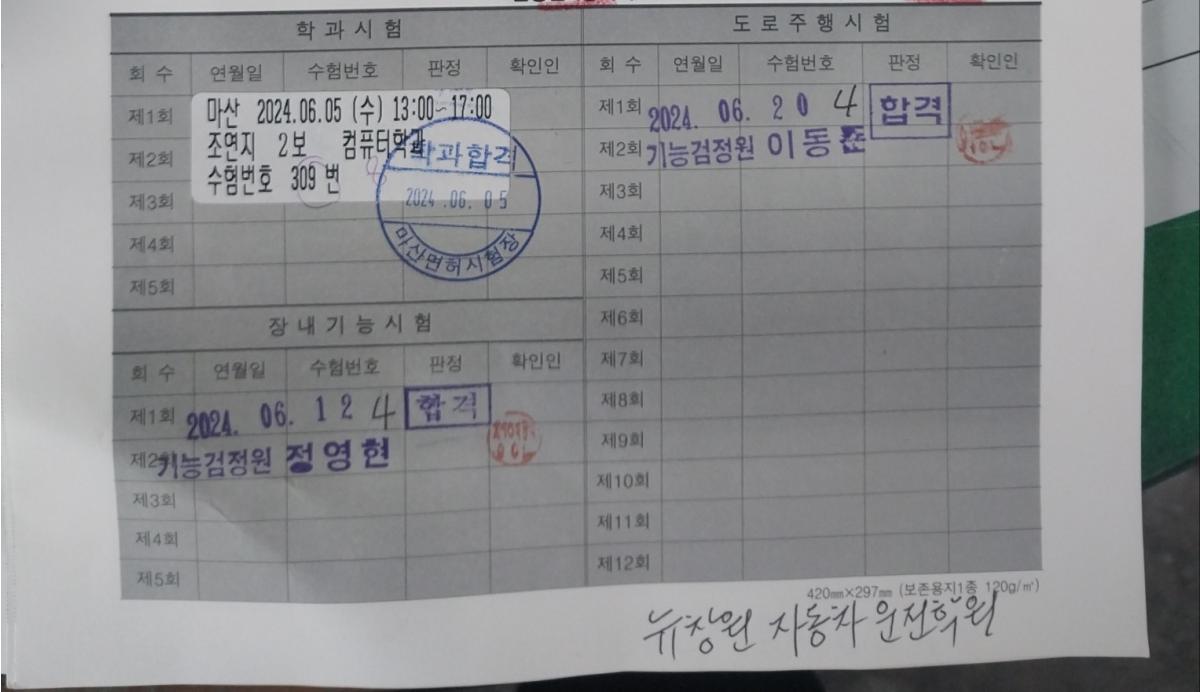 학과시험
회 수 연월일 수험번호 판정 확인인
제1회
마산 2024.06.05 (수) 13:00~17:00
제2회
조연지 2보 컴퓨터학과
수험번호 309 번
제3회
제4회
제5회
학과합격
2024.06.05
마산면허시험장
장내기능시험
회 수 연월일 수험번호 판정 확인인
제1회 2024. 06. 12 4 합격
제2회 기능검정원 정영현
제3회
제4회
제5회
도로주행시험
회 수 연월일 수험번호 판정 확인인
제1회 2024. 06. 20 4 합격
제2회 기능검정원 이동준
제3회
제4회
제5회
제6회
제7회
제8회
제9회
제10회
제11회
제12회
420㎜×297㎜ (보존용지1종 120g/㎡)
뉴창원 자동차 운전학원